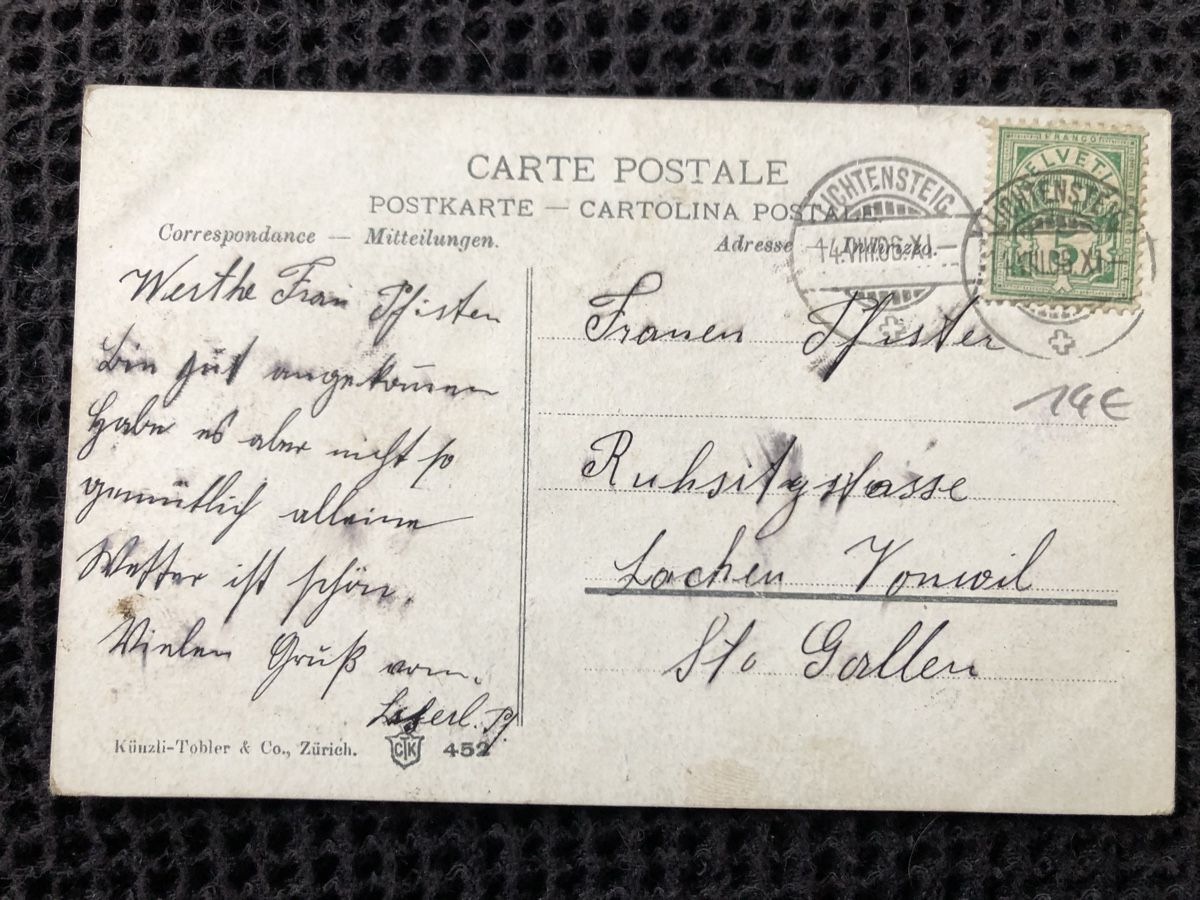 CARTE POSTALE
POSTKARTE — CARTOLINA POSTALE
Correspondance — Mitteilungen.
Adresse — Indirizzo.
LICHTENSTEIG
14.VIII.08.XI—
FRANCO
HELVETIA
5
LICHTENSTEIG
14.VIII.08.XI—
Werthe Frau Pfister
Bin gut angekommen
Habe es aber nicht so
gemütlich alleine
Wetter ist schön.
Vielen Gruß vom.
Pf.
Frauen Pfister
14€
Ruhsitzstrasse
Lachen Vonwil
St. Gallen
Künzli-Tobler & Co., Zürich.
CTK
452